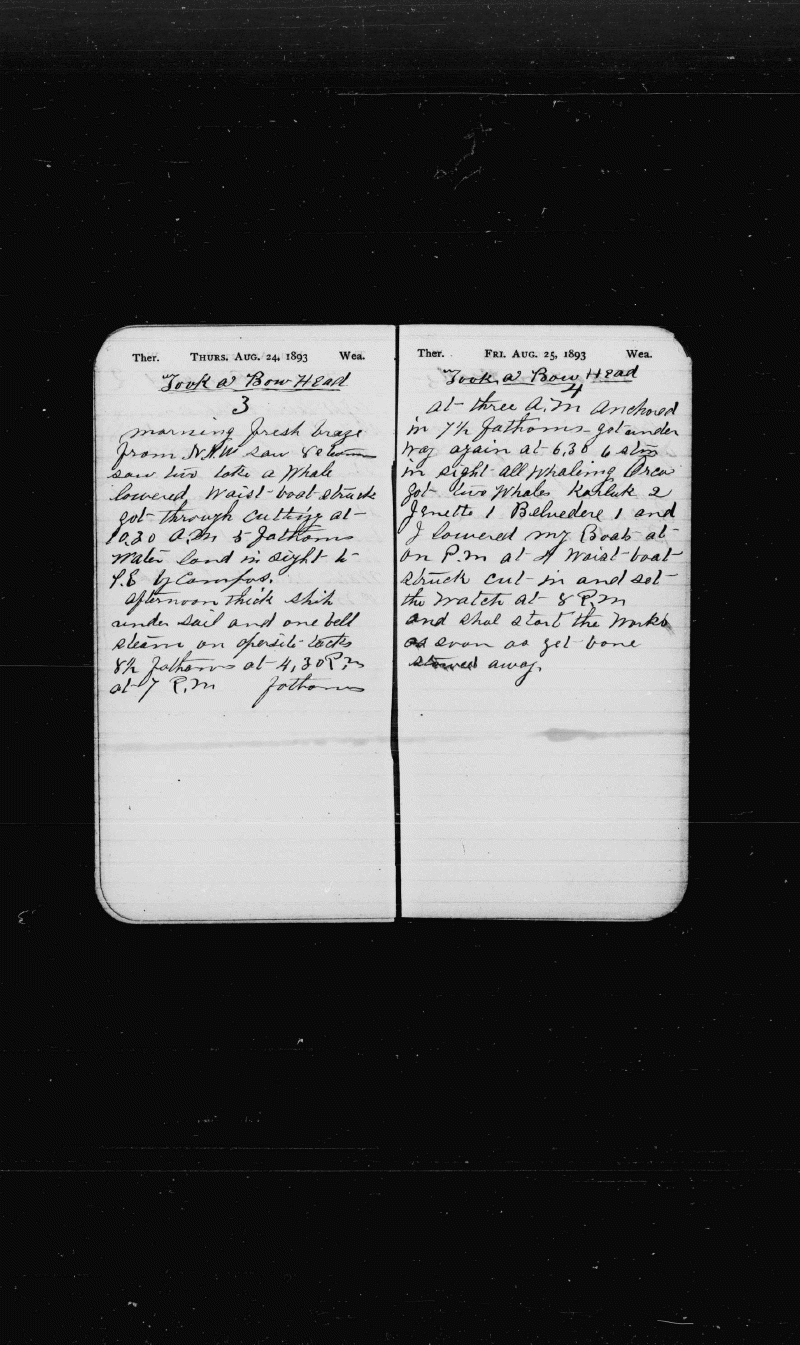 Ther. THURS. AUG. 24, 1893 Wea.
Took a Bow Head
3
morning fresh braze
from N.N.W saw 8
saw two take a Whale
lowered Waist-boat struck
got through cutting at
10.30 A.M 5 fathoms
Water land in sight to
S.E by Compas.
afternoon thick ship
under sail and one bell
steam on opersite tacks
8½ fathoms at 4,30 P.M
at 7 P.M fathoms
Ther. FRI. AUG. 25, 1893 Wea.
Took a Bow Head
4
at three A.M Anchored
in 7½ fathoms got under
way again at 6,30 6 stm
in sight all Whaling Orca
got two Whales Karluk 2
Jenette 1 Belvedere 1 and
I lowered my Boats at
on P.M at 4 Waist boat
struck cut in and set
the Watch at 8 P.M
and shal start the Works
as soon as get bone
stowed away.